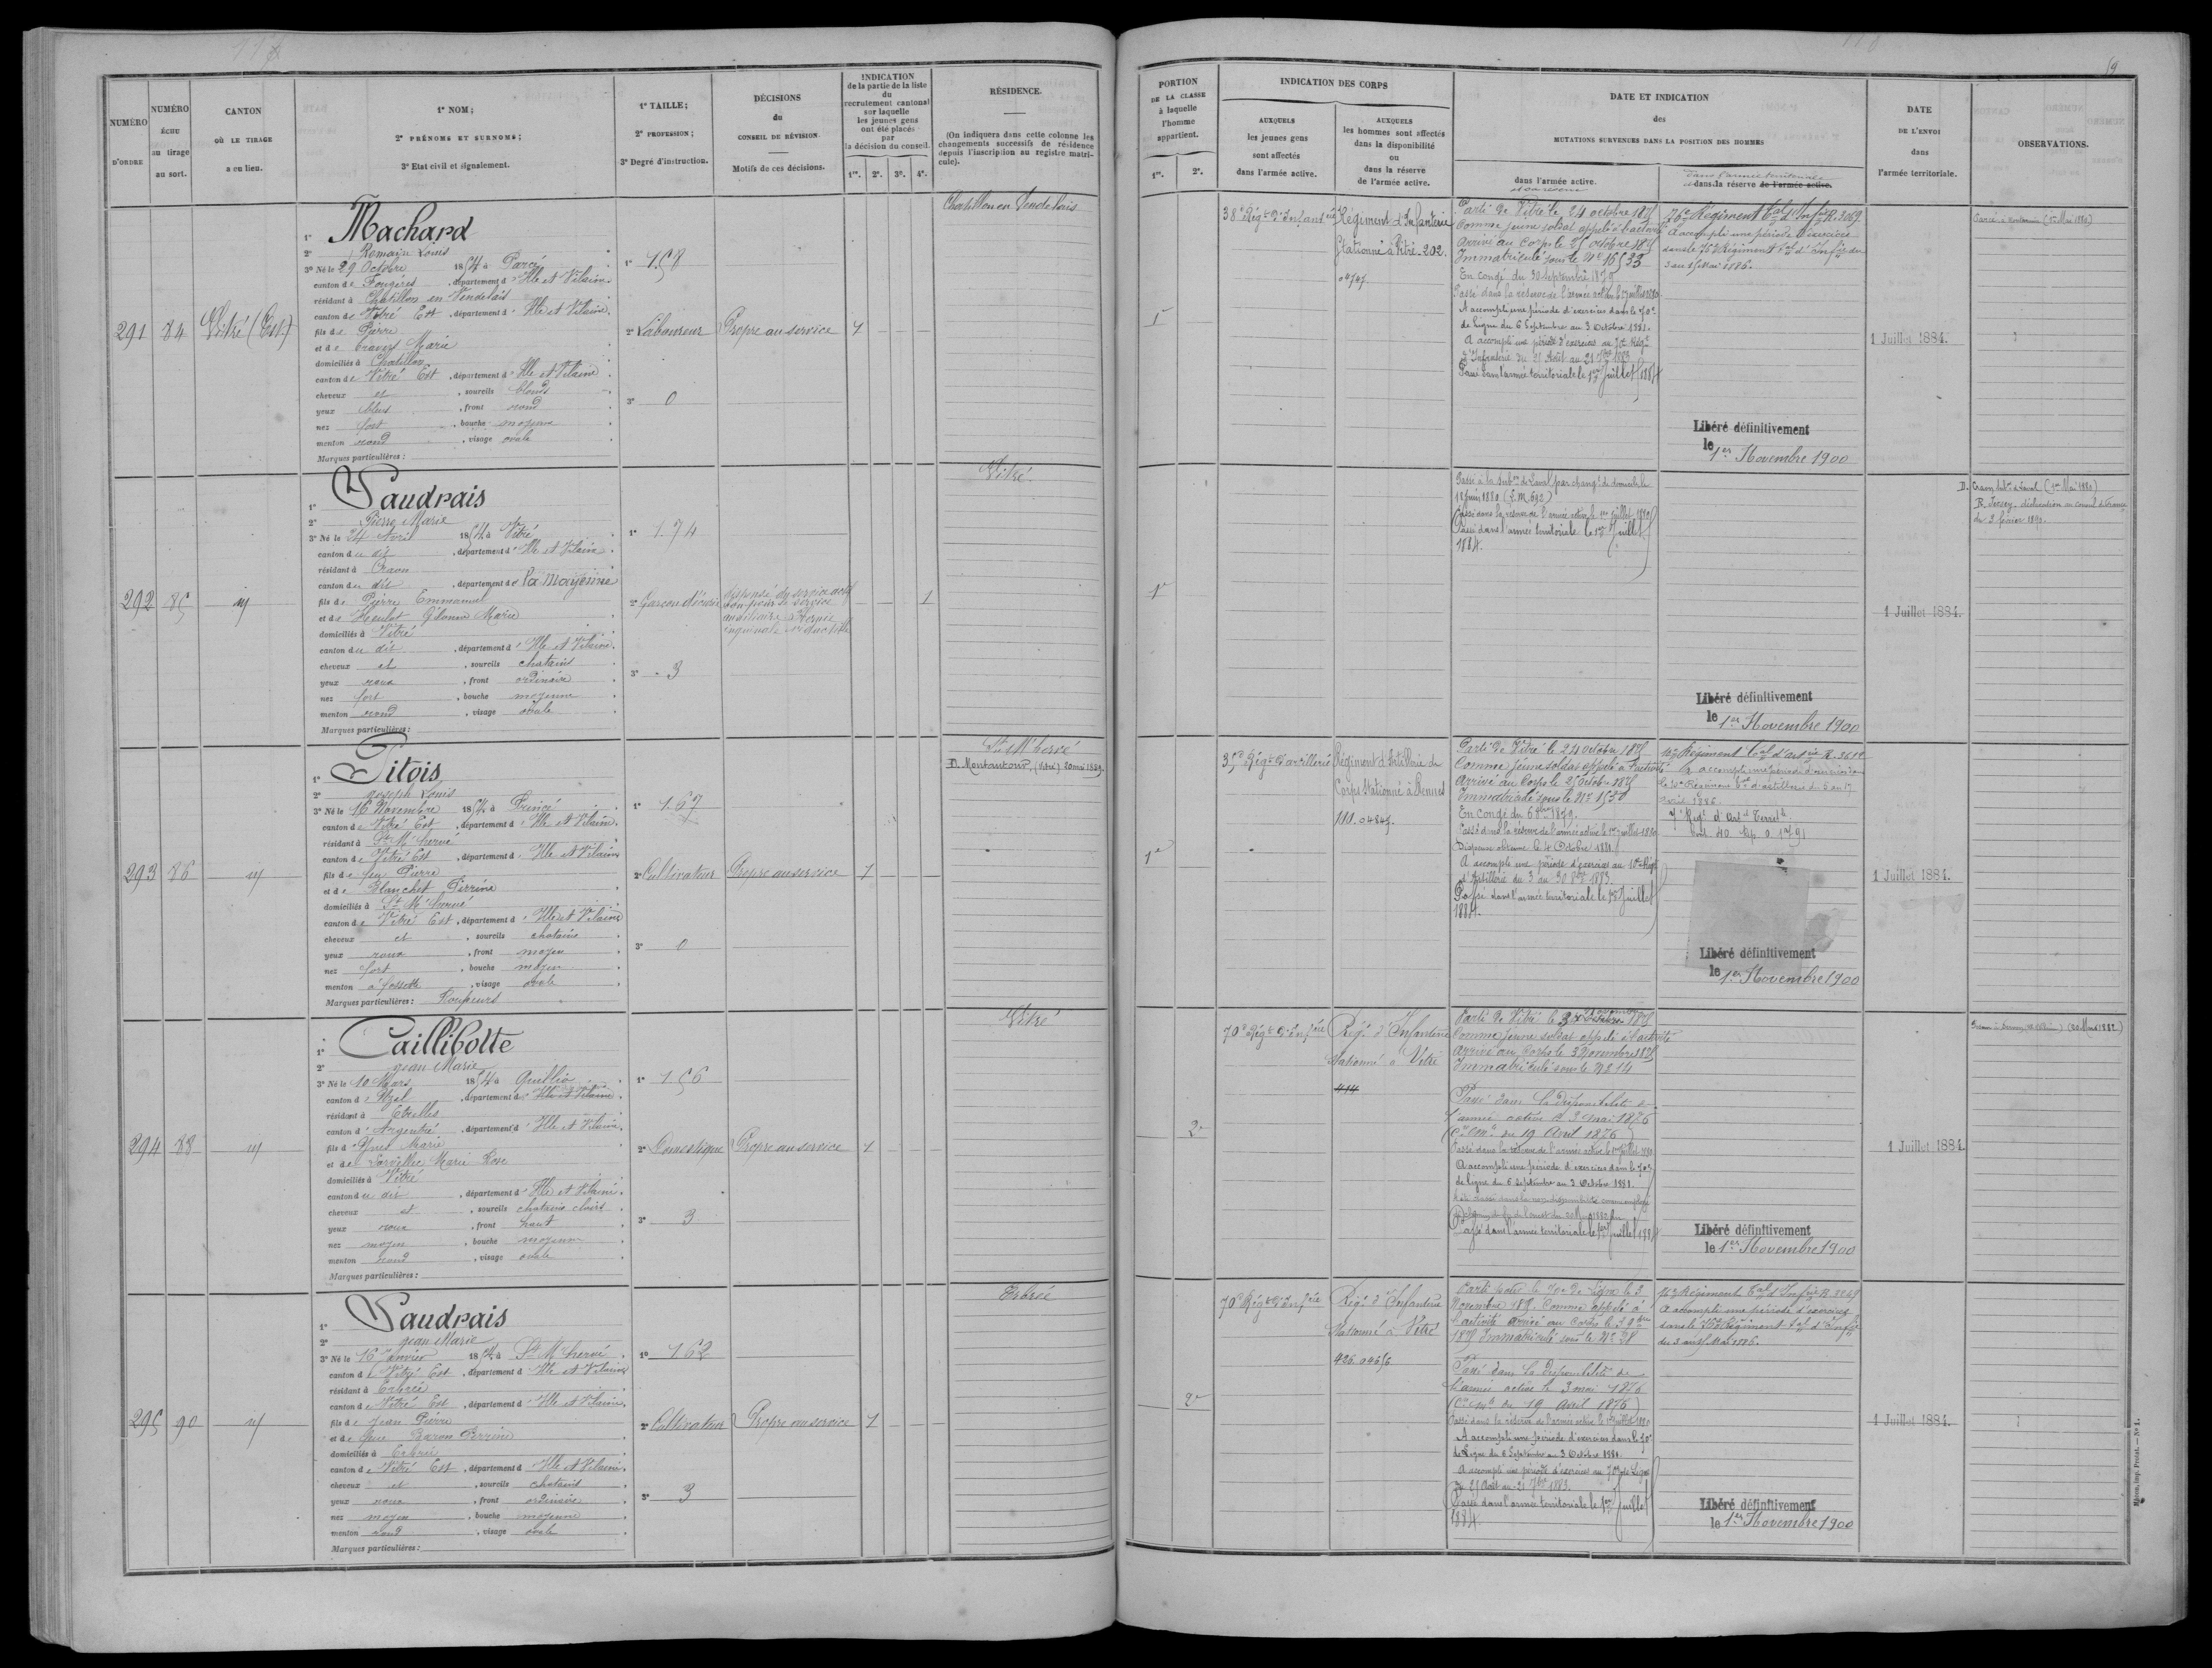 NUMÉRO D'ORDRE
NUMÉRO ÉCHU au tirage au sort.
CANTON OÙ LE TIRAGE a eu lieu.
1° NOM;
2° PRÉNOMS ET SURNOMS;
3° Etat civil et signalement.
1° TAILLE;
2° PROFESSION;
3° Degré d'instruction.
DÉCISIONS du CONSEIL DE RÉVISION.
Motifs de ces décisions.
INDICATION de la partie de la liste du recrutement cantonal sur laquelle les jeunes gens ont été placés par la décision du conseil.
1re. 2e. 3e. 4e.
RÉSIDENCE.
(On indiquera dans cette colonne les changements successifs de résidence depuis l'inscription au registre matricule).
291
84
Vitré (Est)
Machard
2° Romain Louis
3° Né le 29 Octobre 1854 à Parcé
canton de Fougères, département d'Ille et Vilaine
résidant à Chatillon en Vendelais
canton de Vitré Est, département d'Ille et Vilaine.
fils de Pierre
et de Travers Marie
domiciliés à Chatillon
canton de Vitré Est, département d'Ille et Vilaine
cheveux et, sourcils blonds
yeux bleus, front rond
nez fort, bouche moyenne
menton rond, visage ovale
Marques particulières:
1° 1.58
2° Laboureur
3° 0
Propre au service
1
Chatillon en Vendelais
292
85
Vaudrais
2° Pierre Marie
3° Né le 24 Avril 1854 à Vitré
canton du dit, département d'Ille et Vilaine
résidant à Craon
canton du dit, département de la Mayenne
fils de Pierre Emmanuel
domiciliés à Vitré
canton du dit, département d'Ille et Vilaine.
cheveux et, sourcils chatains
yeux roux, front ordinaire
nez fort, bouche moyenne
menton rond, visage ovale
Marques particulières:
1° 1.74
2° Garçon d'écurie
3° 3
dispensé du service actif
bon pour le service
auxiliaire Hernie
inguinale réductible
1
Vitré.
293
86
Gitois
2° Joseph Louis
3° Né le 16 Novembre 1854 à Princé
canton de Vitré Est, département d'Ille et Vilaine.
résidant à St M'hervé
canton de Vitré Est, département d'Ille et Vilaine
fils de feu Pierre
et de Blanchet Perrine
domiciliés à St M'hervé
canton de Vitré Est, département d'Ille et Vilaine
cheveux et, sourcils chatains
yeux roux, front moyen
nez fort, bouche moyen
menton à fossette, visage ovale
Marques particulières:
1° 1.67
2° Cultivateur
3° 0
Propre au service
1
St M'hervé
D. Montautour, (Vitré) 20 mai 1889.
294
88
Caillibotte
2° Jean Marie
3° Né le 10 Mars 1854 à Quillio
canton d'Uzel, département d'Ille et Vilaine
résidant à Etrelles
canton d'Argentré, département d'Ille et Vilaine.
fils d'Yves Marie
domiciliés à Vitré
canton du dit, département d'Ille et Vilaine.
cheveux et, sourcils chatains clairs
yeux roux, front haut
nez moyen, bouche moyenne
menton rond, visage ovale
Marques particulières:
1° 1.56
2° Domestique
3° 3
Propre au service
1
Vitré
295
90
Vaudrais
2° Jean Marie
3° Né le 16 Janvier 1854 à St M'hervé
canton de Vitré Est, département d'Ille et Vilaine
résidant à Erbrée
canton de Vitré Est, département d'Ille et Vilaine.
fils de Jean Pierre
et de feue Baron Perrine
domiciliés à Erbrée
canton de Vitré Est, département d'Ille et Vilaine.
cheveux et, sourcils chatains
yeux roux, front ordinaire
nez moyen, bouche moyenne
menton rond, visage ovale
Marques particulières:
1° 1.62
2° Cultivateur
3° 3
Propre au service
1
Erbrée
59
PORTION DE LA CLASSE à laquelle l'homme appartient.
1re. 2e.
INDICATION DES CORPS
AUXQUELS les jeunes gens sont affectés dans l'armée active.
AUXQUELS les hommes sont affectés dans la disponibilité ou dans la réserve de l'armée active.
DATE ET INDICATION des MUTATIONS SURVENUES DANS LA POSITION DES HOMMES
dans l'armée active.
et sa réserve
dans l'armée territoriale
et dans la réserve de l'armée active.
DATE DE L'ENVOI dans l'armée territoriale.
OBSERVATIONS.
1e
38e Régt d'Infanterie
Régiment d'Infanterie
Stationné à Vitré-202.
04745.
Parti de Vitré le 24 octobre 1875
Comme jeune soldat appelé à l'activité
Arrivé au Corps le 25 octobre 1875
Immatriculé sous le No 16533
En congé du 30 septembre 1879
Passé dans la réserve de l'armée active le 1er juillet 1880
A accompli une période d'exercices dans le 70e
de ligne du 6 Septembre au 3 Octobre 1881.
A accompli une période d'exercices au 70e Régt
d'Infanterie du 25 Août au 21 7bre 1883
Passé dans l'armée territoriale le 1er Juillet 1884
76e Régiment tal d'Infie R. 3069.
A accompli une période d'exercices
dans le 76e Régiment tal d'Infie du
3 au 15 Mai 1886.
Libéré définitivement
le 1er Novembre 1900
1 Juillet 1884.
1e
Passé à la subon de Laval par changt de domicile le
Passé dans la réserve de l'armée active le 1er juillet 1880
Passé dans l'armée territoriale le 1er Juillet
1884.
Libéré définitivement
le 1er Novembre 1900
1 Juillet 1884.
D. Craon subon de Laval (1er Mai 1880)
R. Jersey, déclaration au consul de France
du 3 février 1890.
1e
35e Régt d'artillerie
Régiment d'Artillerie de
Corps Stationné à Rennes
110. 04845.
Parti de Vitré le 24 octobre 1875
Comme jeune soldat appelé à l'activité
Arrivé au Corps le 25 octobre 1875
Immatriculé sous le No 1530
En congé du 6 8bre 1879.
Passé dans la réserve de l'armée active le 1er juillet 1880
Dispense obtenue le 4 Octobre 1881
A accompli une période d'exercices au 10e Régt
d'Artillerie du 3 au 30 8bre 1883.
Passé dans l'armée territoriale le 1er Juillet
1884.
10e Régiment tal d'artie R. 3612
A accompli une période d'exercices dans
le 10e Régiment tal d'artillerie du 5 au 17
Avril 1886.
7e Régt d'Artie Territle
Libéré définitivement
le 1er Novembre 1900
1 Juillet 1884.
2e
70e Régt d'Infie
Régt d'Infanterie
Stationné à Vitré
414
Parti de Vitré le 3 Novembre 1875
Comme jeune soldat appelé à l'activité
Arrivé au Corps le 3 Novembre 1875
Immatriculé sous le No 14
Passé dans la disponibilité de
l'armée active le 3 mai 1876
(Cre Mlle du 19 Avril 1876)
Passé dans la réserve de l'armée active le 1er juillet 1880
A accompli une période d'exercices dans le 70e
de ligne du 6 septembre au 3 Octobre 1881.
Passé dans l'armée territoriale le 1er Juillet 1884
Libéré définitivement
le 1er Novembre 1900
1 Juillet 1884.
2e
70e Régt d'Infie
Régt d'Infanterie
Stationné à Vitré
426. 04656
Parti pour le 70e de Ligne le 3
Novembre 1875. Comme appelé à
l'activité arrivé au Corps le 3 9bre
1875 Immatriculé sous le No 38
Passé dans la disponibilité de
l'armée active le 3 mai 1876
(Cre Mlle du 19 Avril 1876)
Passé dans la réserve de l'armée active le 1er juillet 1880
A accompli une période d'exercices dans le 70e
de Ligne du 6 Septembre au 3 Octobre 1881.
A accompli une période d'exercices au 70e de Ligne
du 25 Août au 21 7bre 1883.
Passé dans l'armée territoriale le 1er Juillet
1884.
76e Régiment tal d'Infie R. 3269
A accompli une période d'exercices
dans le 76e Régiment tal d'Infie
du 3 au 15 Mai 1886.
Libéré définitivement
le 1er Novembre 1900
1 Juillet 1884.
Mâcon, imp. Protat. — No 1.